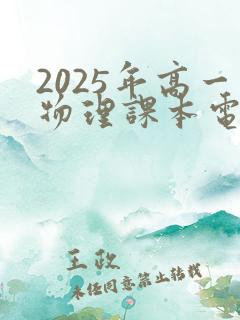 2025年高一
物理課本電
王政
未经同意禁止转载